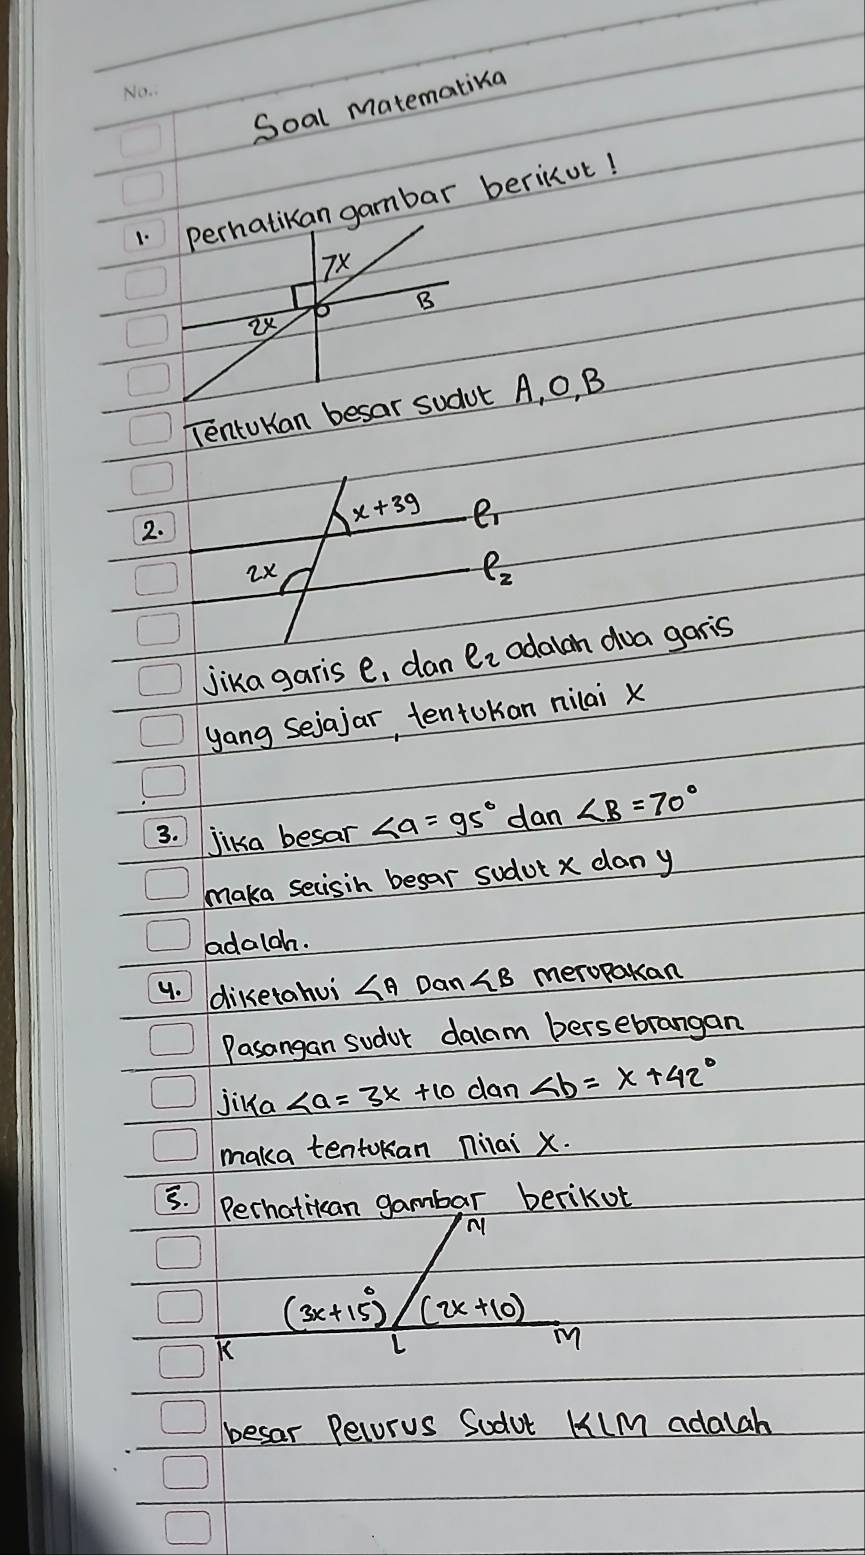 No..
Soal Matematika
1. Perhatikan gambar berikut!
7x
B
2x
O
Tentukan besar sudut A, O, B
2. x+39 l1
2x l2
Jika garis l1 dan l2 adalah dua garis
yang sejajar, tentukan nilai x
3. Jika besar ∠a = 95° dan ∠B = 70°
Maka selisih besar sudut x dan y
adalah.
4. diketahui ∠A Dan ∠B merupakan
Pasangan sudut dalam bersebrangan
jika ∠a = 3x + 10 dan ∠b = x + 42°
maka tentukan nilai x.
5. Perhatikan gambar berikut
N
(3x+15°) (2x+10)
K L M
besar Pelurus Sudut KLM adalah